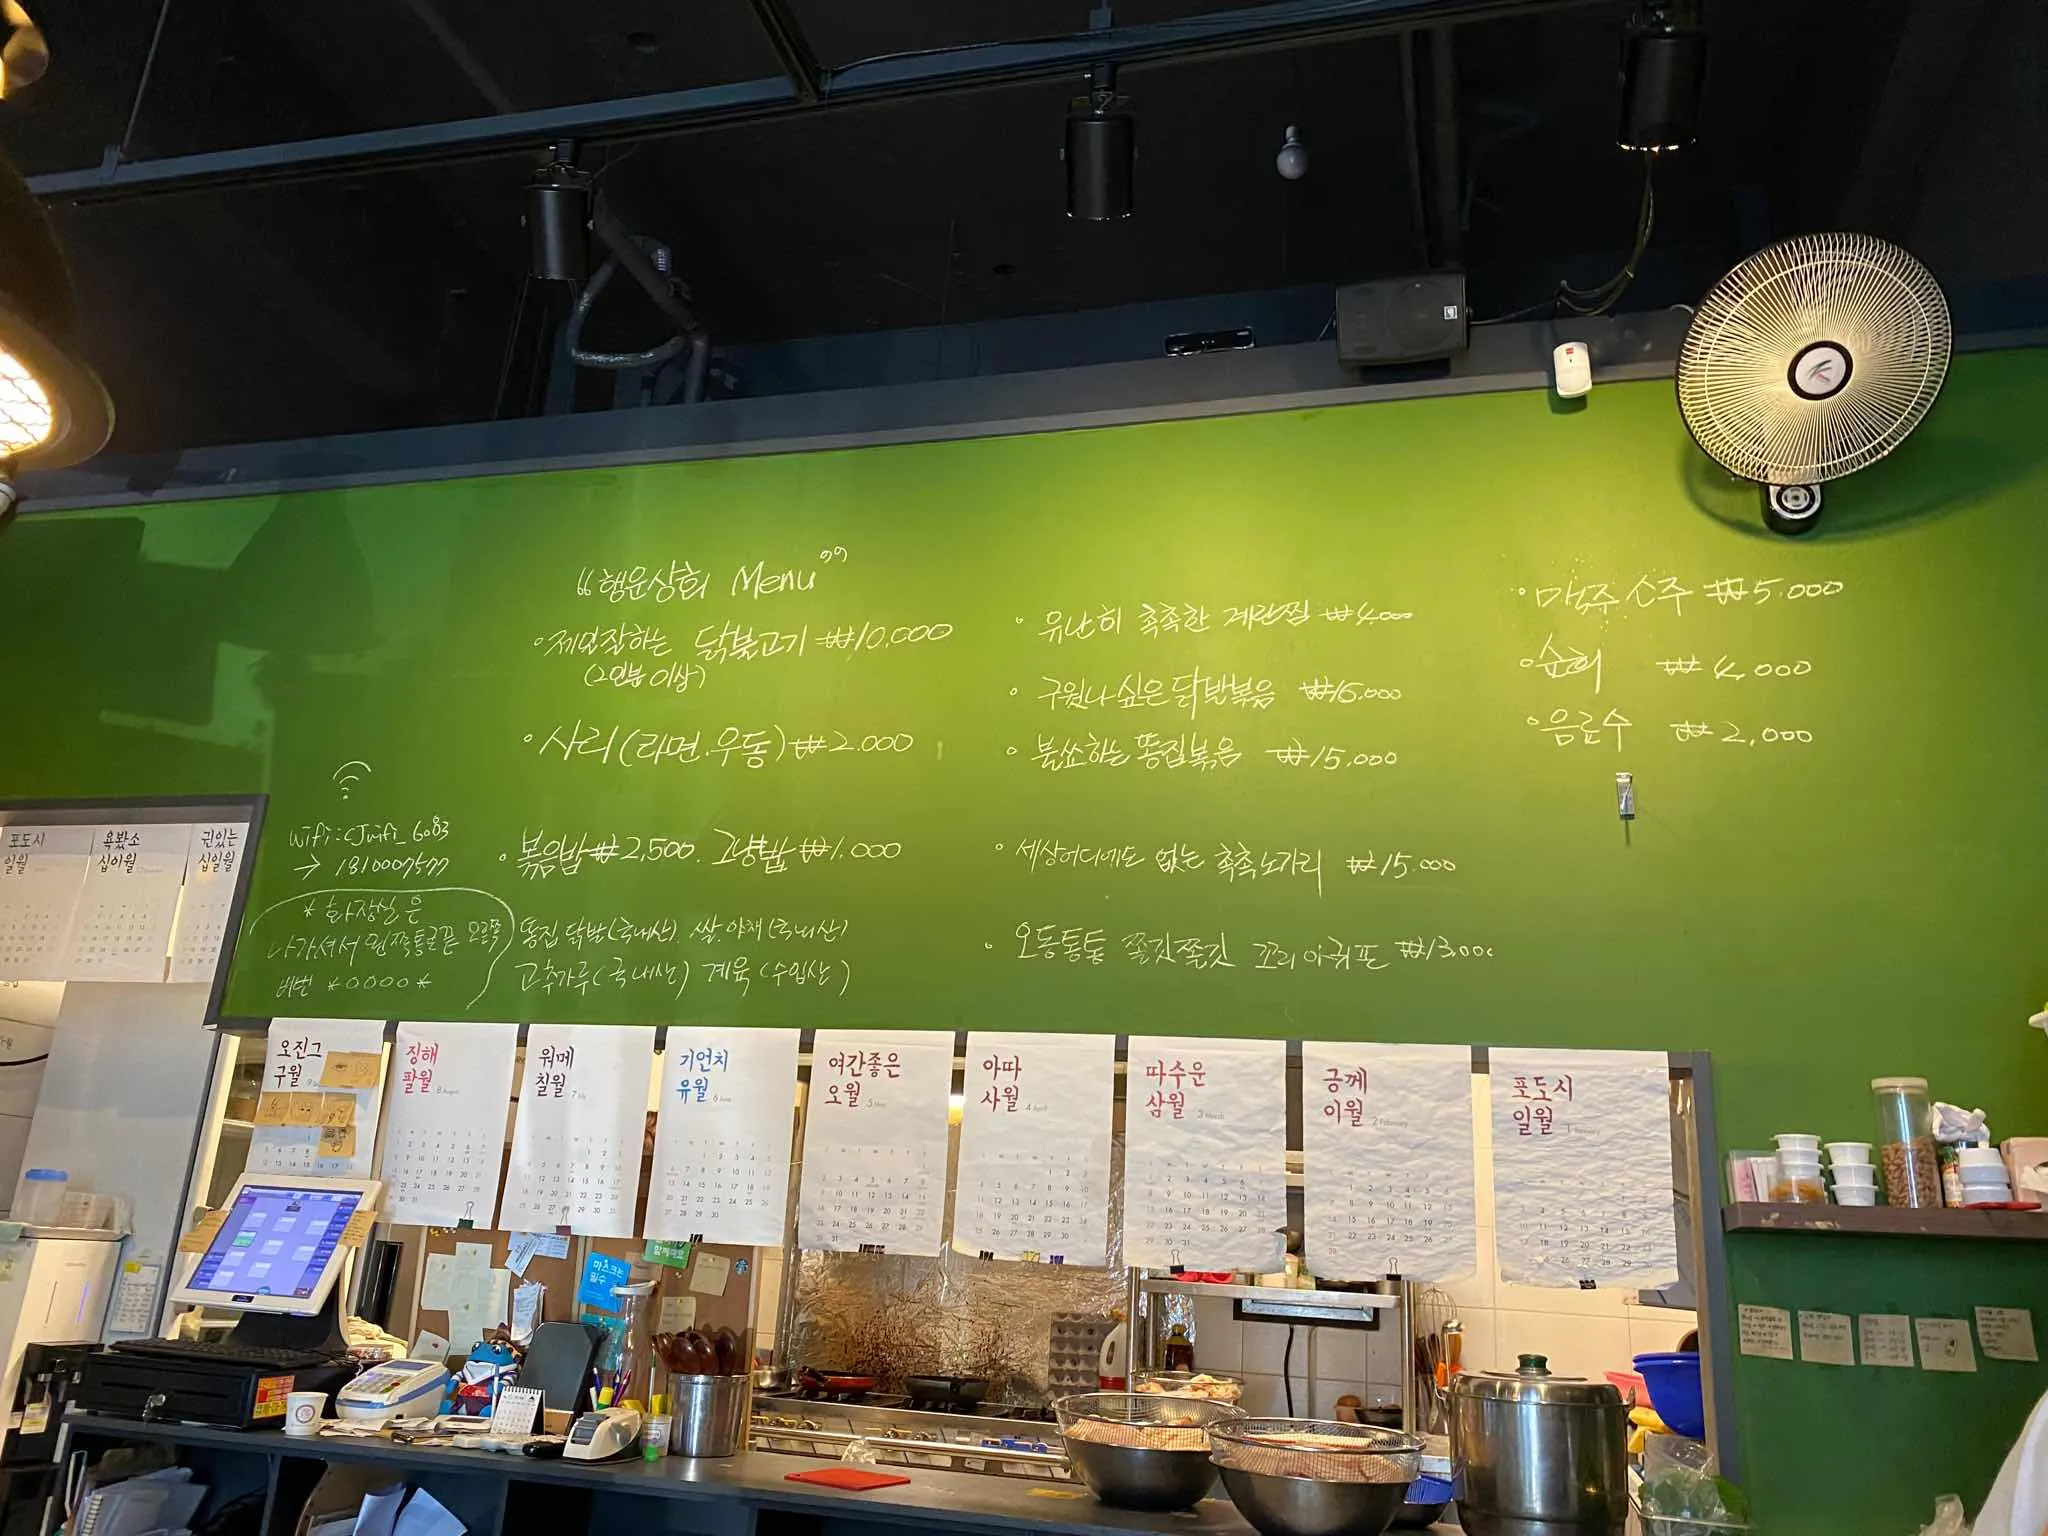 “행운상회 Menu”
◦ 제일잘하는 닭불고기 ₩10,000
(2인분 이상)
◦ 사리(라면.우동) ₩2.000
볶음밥 ₩2,500. 그냥밥 ₩1.000
똥집 닭발(국내산). 쌀.야채(국내산)
고추가루(국내산) 계육(수입산)
◦ 유난히 촉촉한 계란찜 ₩4,000
◦ 구웠나 싶은 닭발볶음 ₩15.000
◦ 불쑈하는 똥집볶음 ₩15.000
◦ 세상어디에도 없는 촉촉노가리 ₩15.000
◦ 오동통통 쫄깃쫄깃 꼬리아귀포 ₩13.000
◦ 맥주 소주 ₩5.000
◦ 순희 ₩4,000
◦ 음료수 ₩2,000
wifi: CJwifi_6083
→ 1810007577
* 화장실은
나가셔서 왼쪽통로끝 오른쪽
비번 *0000*
포도시
일월
욕봤소
십이월
귄있는
십일월
오진그
구월 9
징해
팔월 8 August
워메
칠월 7 July
기언치
유월 6 June
여간좋은
오월 5 May
아따
사월 4 April
따수운
삼월 3 March
긍께
이월 2 February
포도시
일월 1
마스크는
필수
함께해요